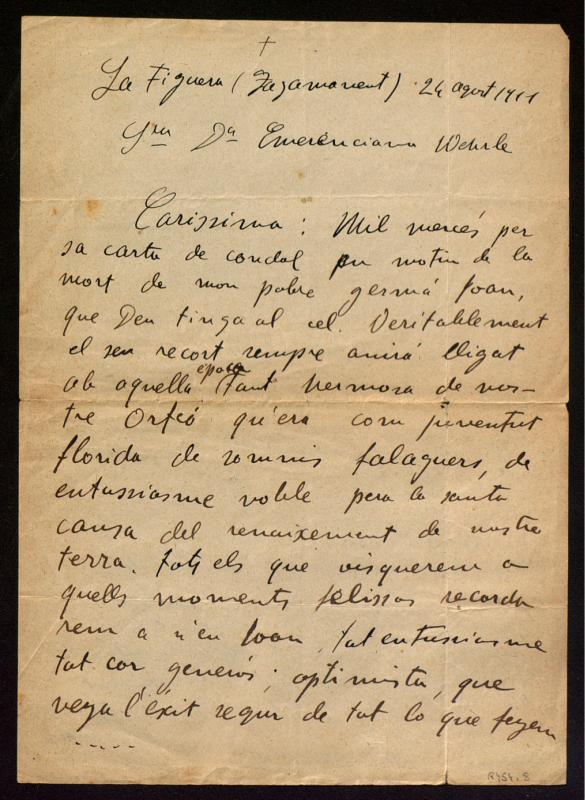 +
La Figuera (Gazamanent) 24 agost 1911
Sra Da Emerenciana Wehrle
Carissima: Mil mercés per
sa carta de condol en motiu de la
mort de mon pobre germá Joan,
que Deu tinga al cel. Veritablement
el seu recort sempre anirá lligat
ab aquella epoca tant hermosa de nos-
tre Orfeó qu'era com juventut
florida de somnis falaguers, de
entussiasme noble pera la santa
causa del renaixement de nostra
terra. Tots els que visquerem a
quells moments felissos recorda
rem a n'en Joan, tot entussiasme
tot cor generós; optimista, que
veya l'éxit segur de tot lo que feyem
.....
R454.8